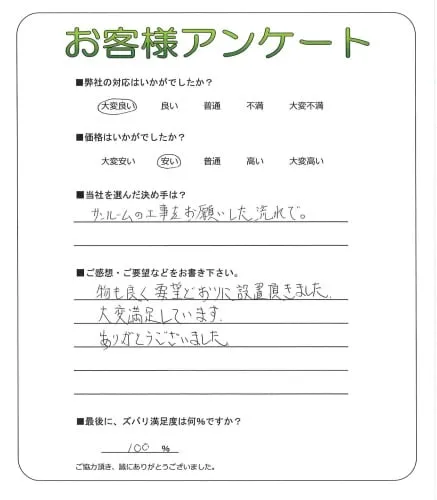 お客様アンケート
■弊社の対応はいかがでしたか?
大変良い 良い 普通 不満 大変不満
■価格はいかがでしたか?
大変安い 安い 普通 高い 大変高い
■当社を選んだ決め手は?
サンルームの工事をお願いした流れで。
■ご感想・ご要望などをお書き下さい。
物も良く要望どおりに設置頂きました。
大変満足しています。
ありがとうございました。
■最後に、ズバリ満足度は何%ですか?
100 %
ご協力頂き、誠にありがとうございました。